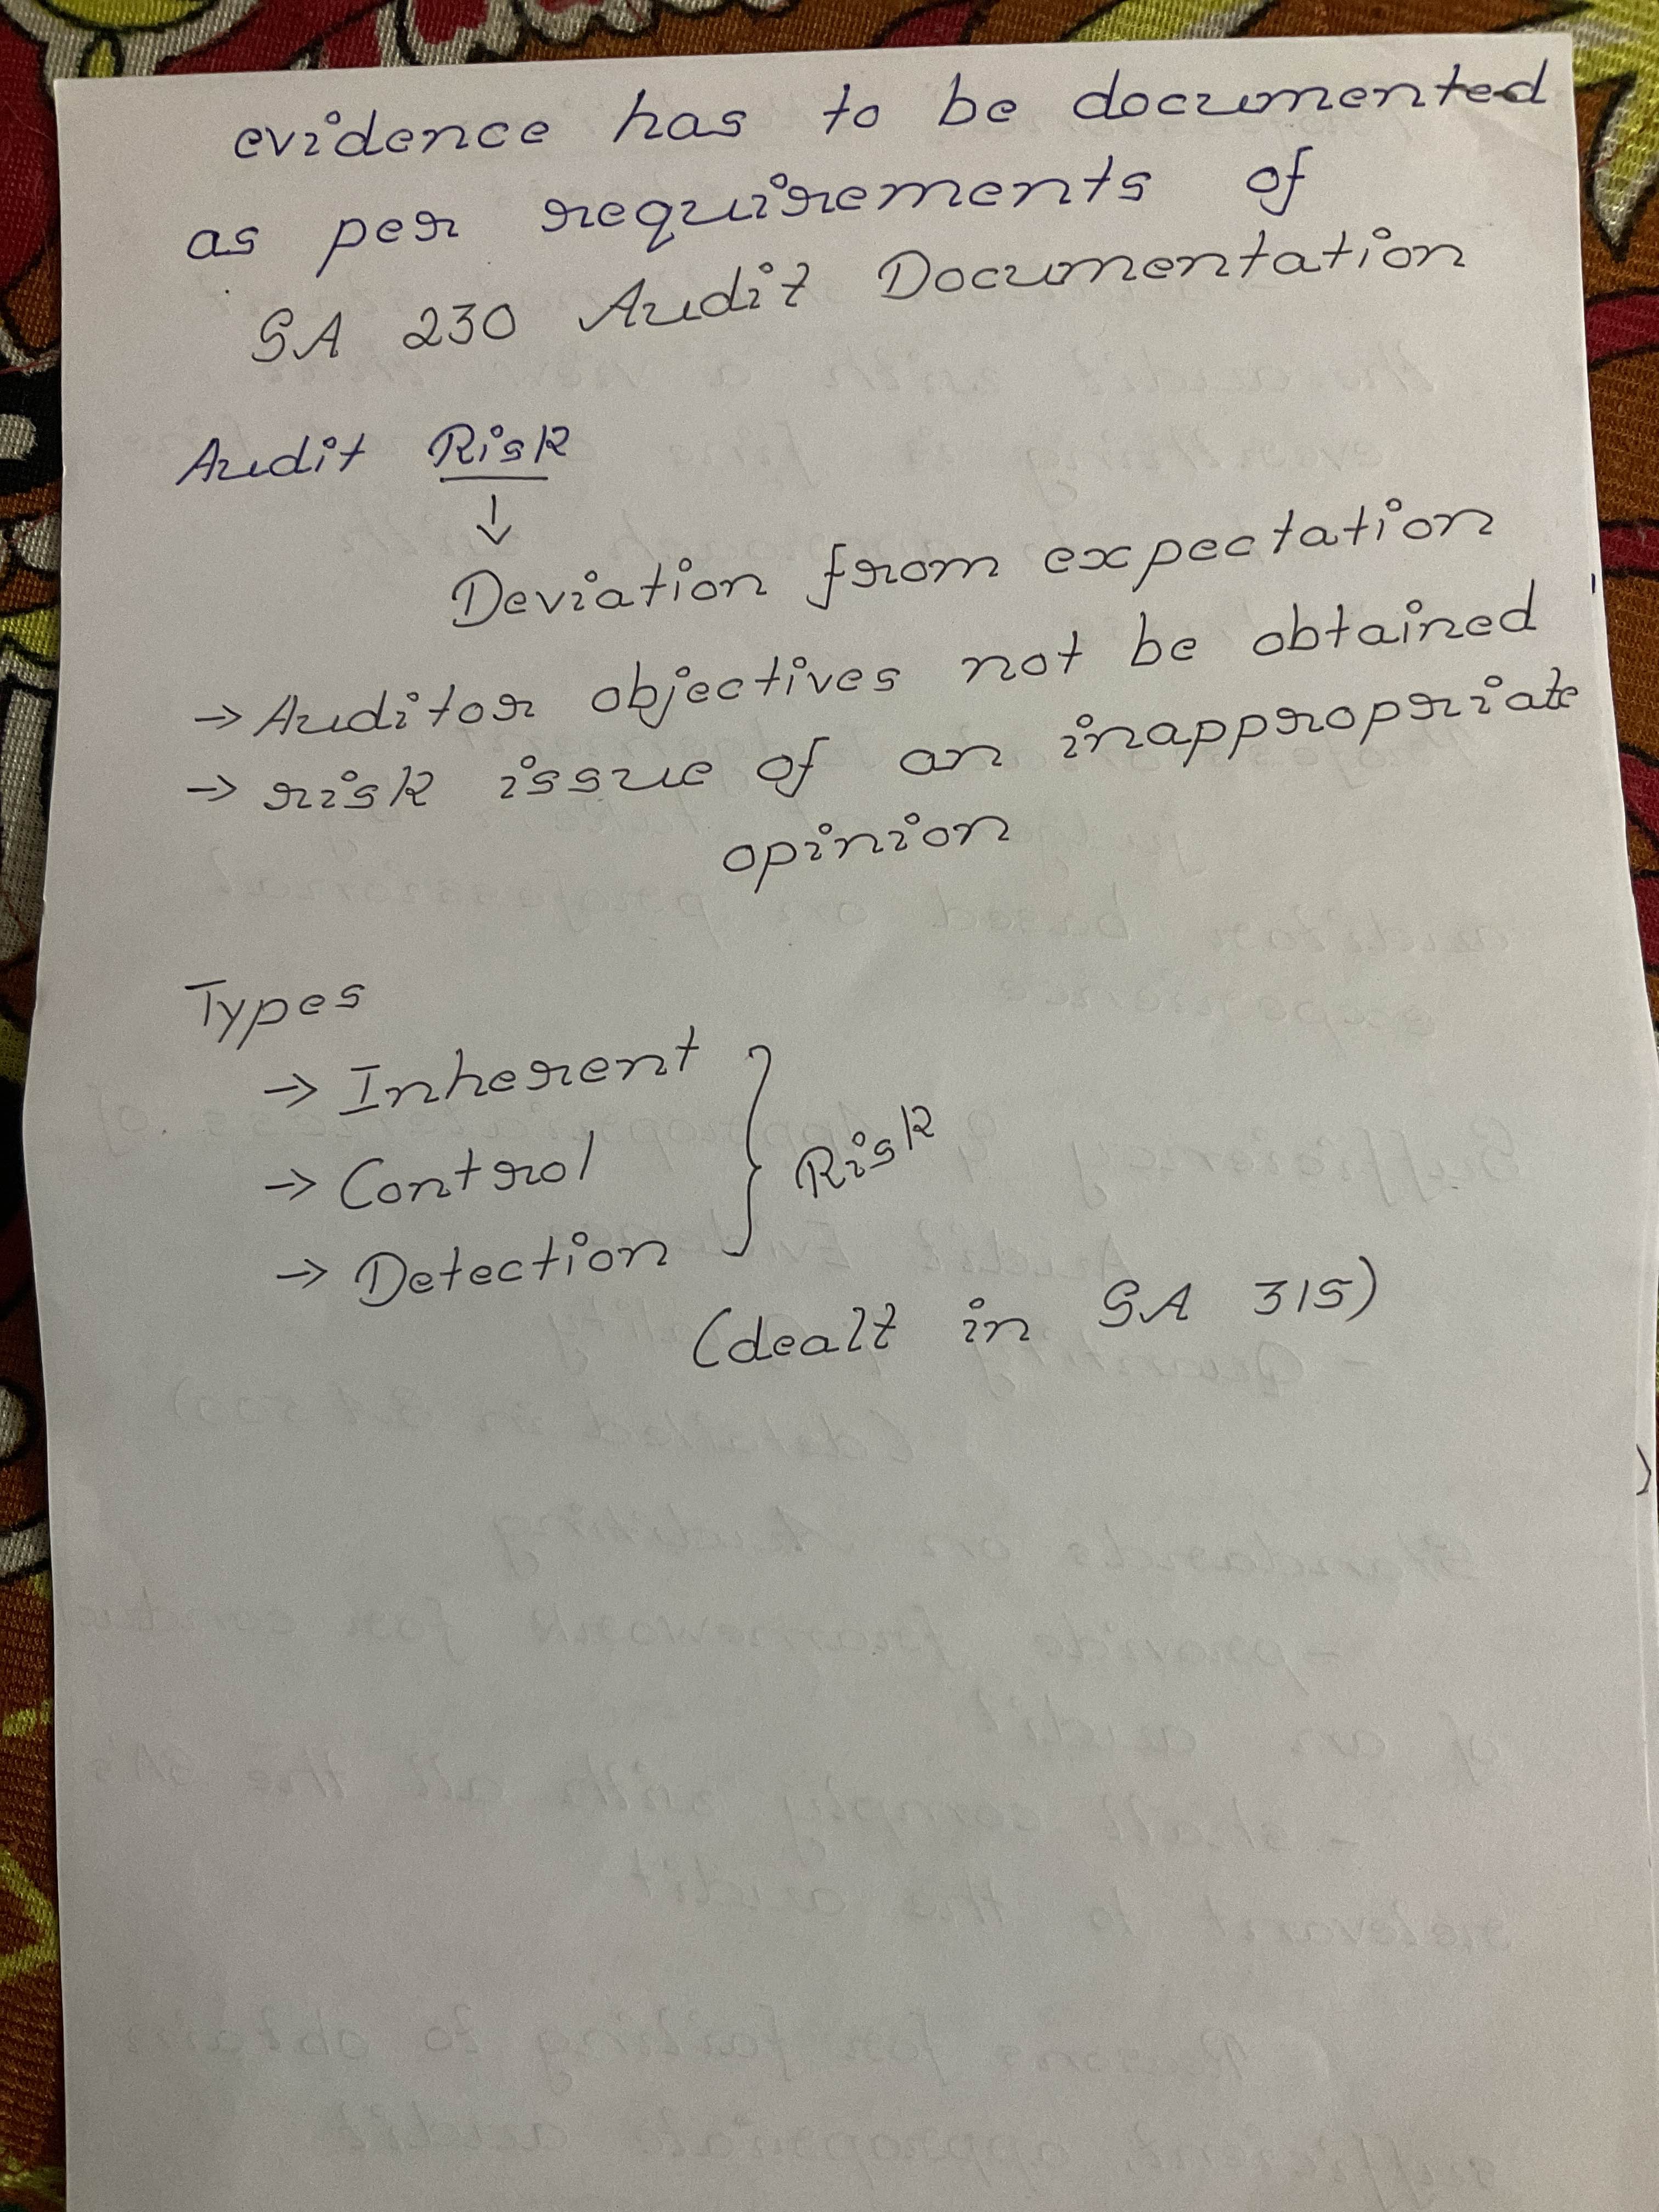 evidence has to be documented
as per requirements of
SA 230 Audit Documentation
Audit Risk
↓
Deviation from expectation
→ Auditor objectives not be obtained
→ risk issue of an inappropriate
opinion
Types
→ Inherent
→ Control } Risk
→ Detection
(dealt in SA 315)